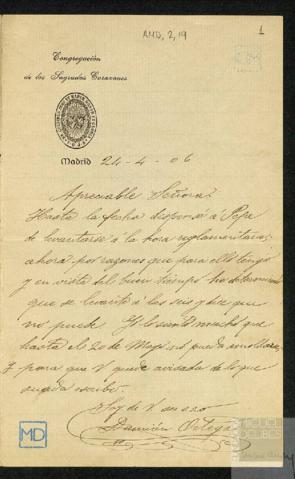 AMD, 2, 19
1
Congregación
de los Sagrados Corazones
Madrid 24-4-06
Apreciable Señora:
Hasta la fecha dispensé á Pepe
de levantarse á la hora reglamentaria;
ahora por razones que para ello tengo
y en vista del buen tiempo he determinado
que se levante á las seis y dice que
no puede. Yo lo siento mucho que
hasta el 20 de Mayo no pueda
y para que V. quede avisada de lo que
suceda escribo.
Soy de V. su
Damián Ortega
MD
MIGUEL
DELIBES